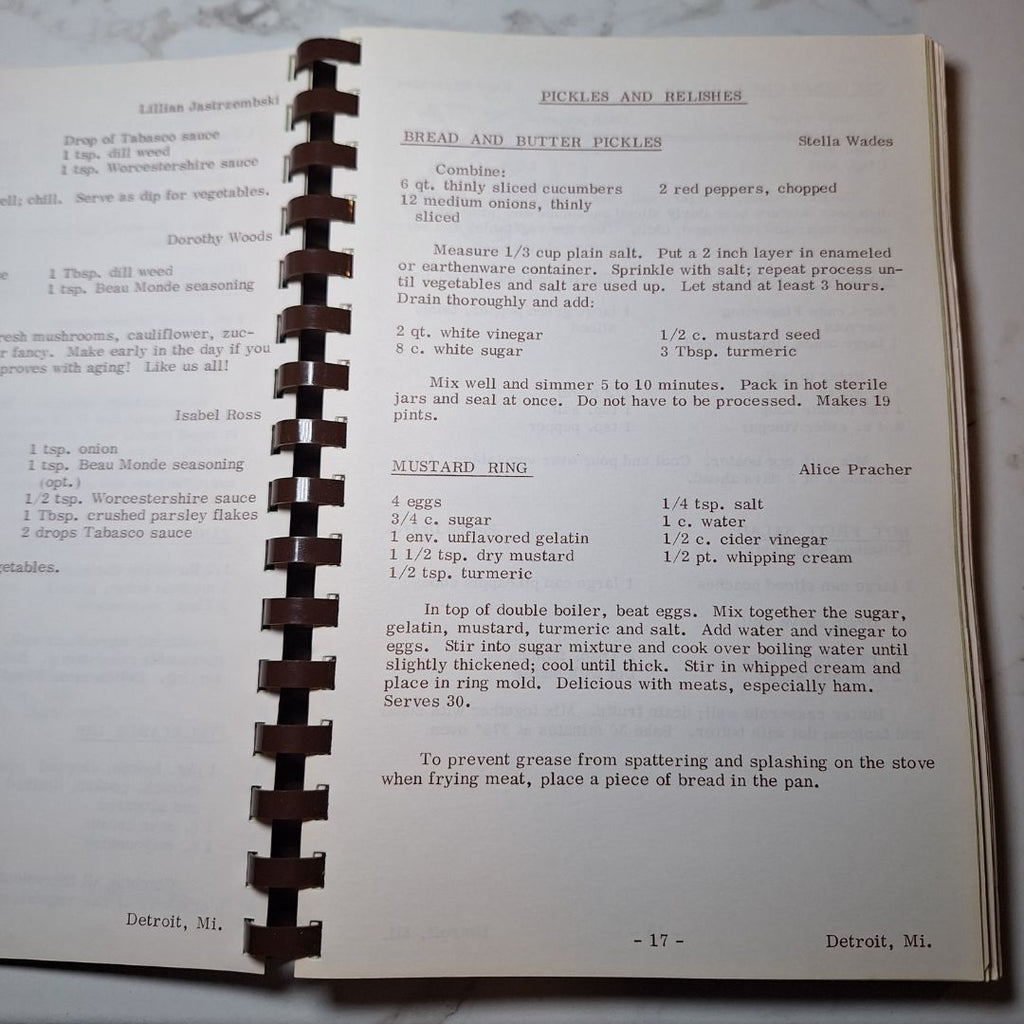 Lillian Jastrzembski
Drop of Tabasco sauce
1 tsp. dill weed
1 tsp. Worcestershire sauce
chill. Serve as dip for vegetables.
Dorothy Woods
1 Tbsp. dill weed
1 tsp. Beau Monde seasoning
mushrooms, cauliflower, zuc-
fancy. Make early in the day if you
with aging! Like us all!
Isabel Ross
1 tsp. onion
1 tsp. Beau Monde seasoning
(opt.)
1/2 tsp. Worcestershire sauce
1 Tbsp. crushed parsley flakes
2 drops Tabasco sauce
etables.
Detroit, Mi.
PICKLES AND RELISHES
BREAD AND BUTTER PICKLES Stella Wades
Combine:
6 qt. thinly sliced cucumbers 2 red peppers, chopped
12 medium onions, thinly
sliced
Measure 1/3 cup plain salt. Put a 2 inch layer in enameled
or earthenware container. Sprinkle with salt; repeat process un-
til vegetables and salt are used up. Let stand at least 3 hours.
Drain thoroughly and add:
2 qt. white vinegar 1/2 c. mustard seed
8 c. white sugar 3 Tbsp. turmeric
Mix well and simmer 5 to 10 minutes. Pack in hot sterile
jars and seal at once. Do not have to be processed. Makes 19
pints.
MUSTARD RING Alice Pracher
4 eggs 1/4 tsp. salt
3/4 c. sugar 1 c. water
1 env. unflavored gelatin 1/2 c. cider vinegar
1 1/2 tsp. dry mustard 1/2 pt. whipping cream
1/2 tsp. turmeric
In top of double boiler, beat eggs. Mix together the sugar,
gelatin, mustard, turmeric and salt. Add water and vinegar to
eggs. Stir into sugar mixture and cook over boiling water until
slightly thickened; cool until thick. Stir in whipped cream and
place in ring mold. Delicious with meats, especially ham.
Serves 30.
To prevent grease from spattering and splashing on the stove
when frying meat, place a piece of bread in the pan.
- 17 - Detroit, Mi.